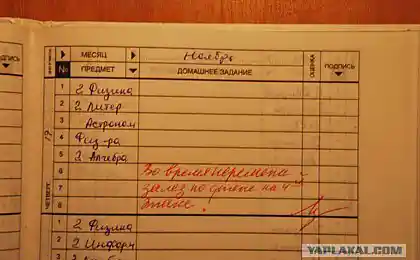 МЕСЯЦ Ноябрь
ПОДПИСЬ
№ ПРЕДМЕТ ДОМАШНЕЕ ЗАДАНИЕ ОЦЕНКА ПОДПИСЬ
1 2 Физика
2 2 Литер
3 Астроном
4 Физ-ра
5 2 Алгебра
6 Во время перемены
7 залез по стене на 4й
8 этаж!
ЧЕТВЕРГ
1 2 Физика
2 2 Информ
3
YAPLAKAL.COM